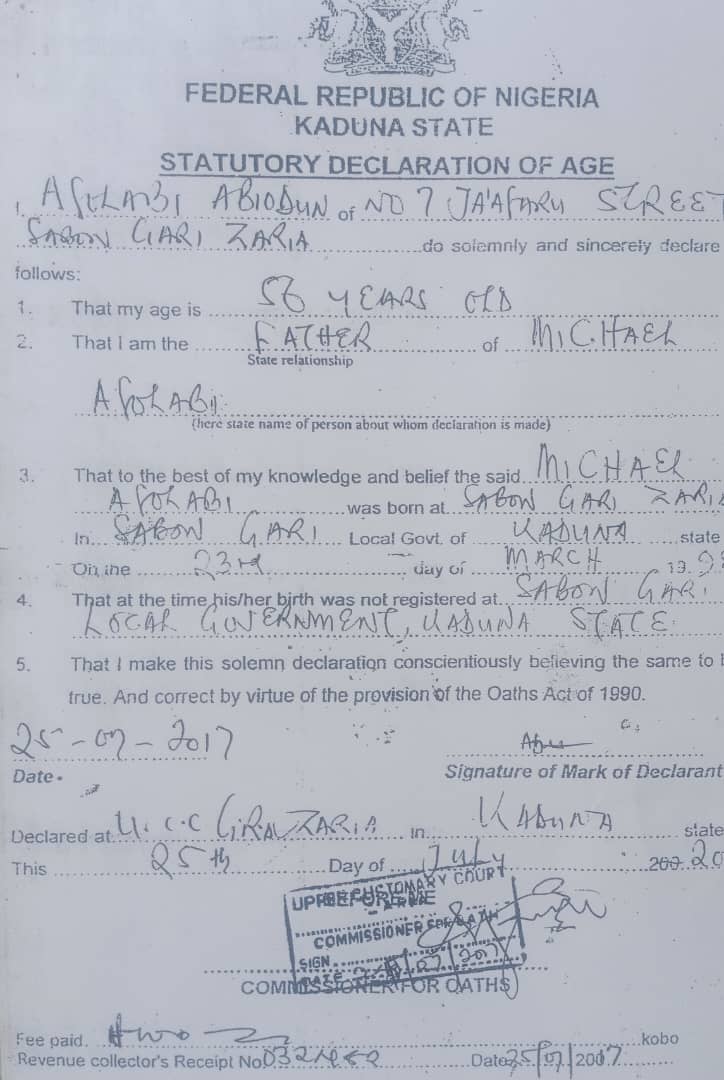 FEDERAL REPUBLIC OF NIGERIA
KADUNA STATE
STATUTORY DECLARATION OF AGE
I, AFOLABI ABIODUN of NO 7 JA'AFARU STREET
SABON GARI ZARIA do solemnly and sincerely declare
follows:
1. That my age is 56 YEARS OLD
2. That I am the FATHER of MICHAEL
State relationship
AFOLABI
(here state name of person about whom declaration is made)
3. That to the best of my knowledge and belief the said MICHAEL
AFOLABI was born at SABON GARI ZARIA
In SABON GARI Local Govt. of KADUNA state
On the 23rd day of MARCH 19.9
4. That at the time his/her birth was not registered at SABON GARI
LOCAL GOVERNMENT, KADUNA STATE
5. That I make this solemn declaration conscientiously believing the same to b
true. And correct by virtue of the provision of the Oaths Act of 1990.
25-07-2017
Date Signature of Mark of Declarant
Declared at U.C.C ZARIA In KADUNA state
This 25th Day of July 200 20
UPPER CUSTOMARY COURT
BEFORE ME
COMMISSIONER FOR OATH
SIGN
DATE 07/2017
COMMISSIONER FOR OATHS
Fee paid. kobo
Revenue collector's Receipt No Date 25/07/2017